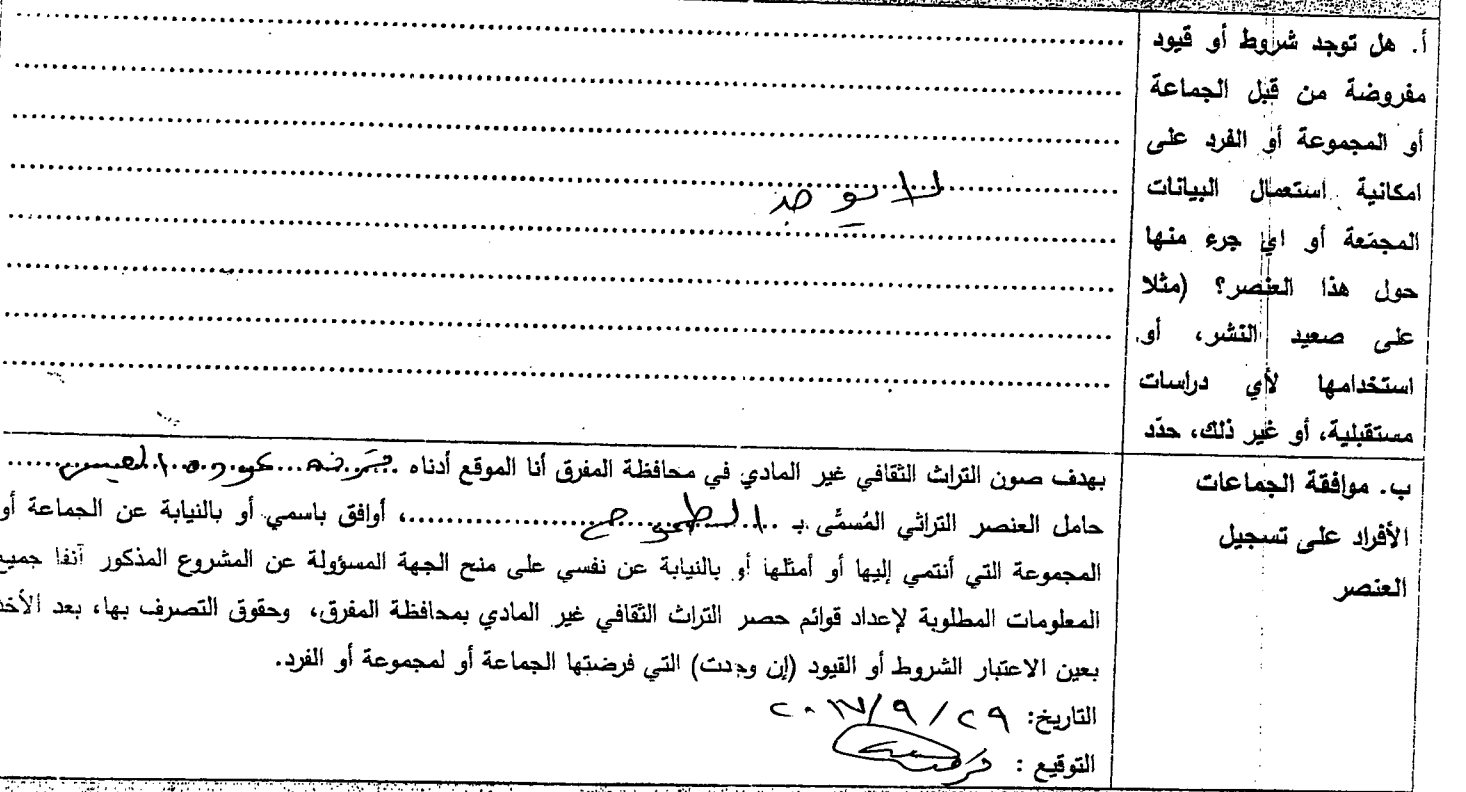 أ. هل توجد شروط أو قيود
مفروضة من قبل الجماعة
أو المجموعة أو الفرد على
امكانية استعمال البيانات
المجمّعة أو اي جزء منها
حول هذا العنصر؟ (مثلا
على صعيد النشر، أو
استخدامها لأي دراسات
مستقبلية، أو غير ذلك، حدّد
لا يوجد
ب. موافقة الجماعات
الأفراد على تسجيل
العنصر
بهدف صون التراث الثقافي غير المادي في محافظة المفرق أنا الموقع أدناه
حامل العنصر التراثي المُسمَّى بـ ..........، أوافق باسمي أو بالنيابة عن الجماعة أو
المجموعة التي أنتمي إليها أو أمثلها أو بالنيابة عن نفسي على منح الجهة المسؤولة عن المشروع المذكور آنفا جميع
المعلومات المطلوبة لإعداد قوائم حصر التراث الثقافي غير المادي بمحافظة المفرق، وحقوق التصرف بها، بعد الأخذ
بعين الاعتبار الشروط أو القيود (إن وجدت) التي فرضتها الجماعة أو لمجموعة أو الفرد.
التاريخ: ٢٩ / ٩ / ٢٠١٧
التوقيع :